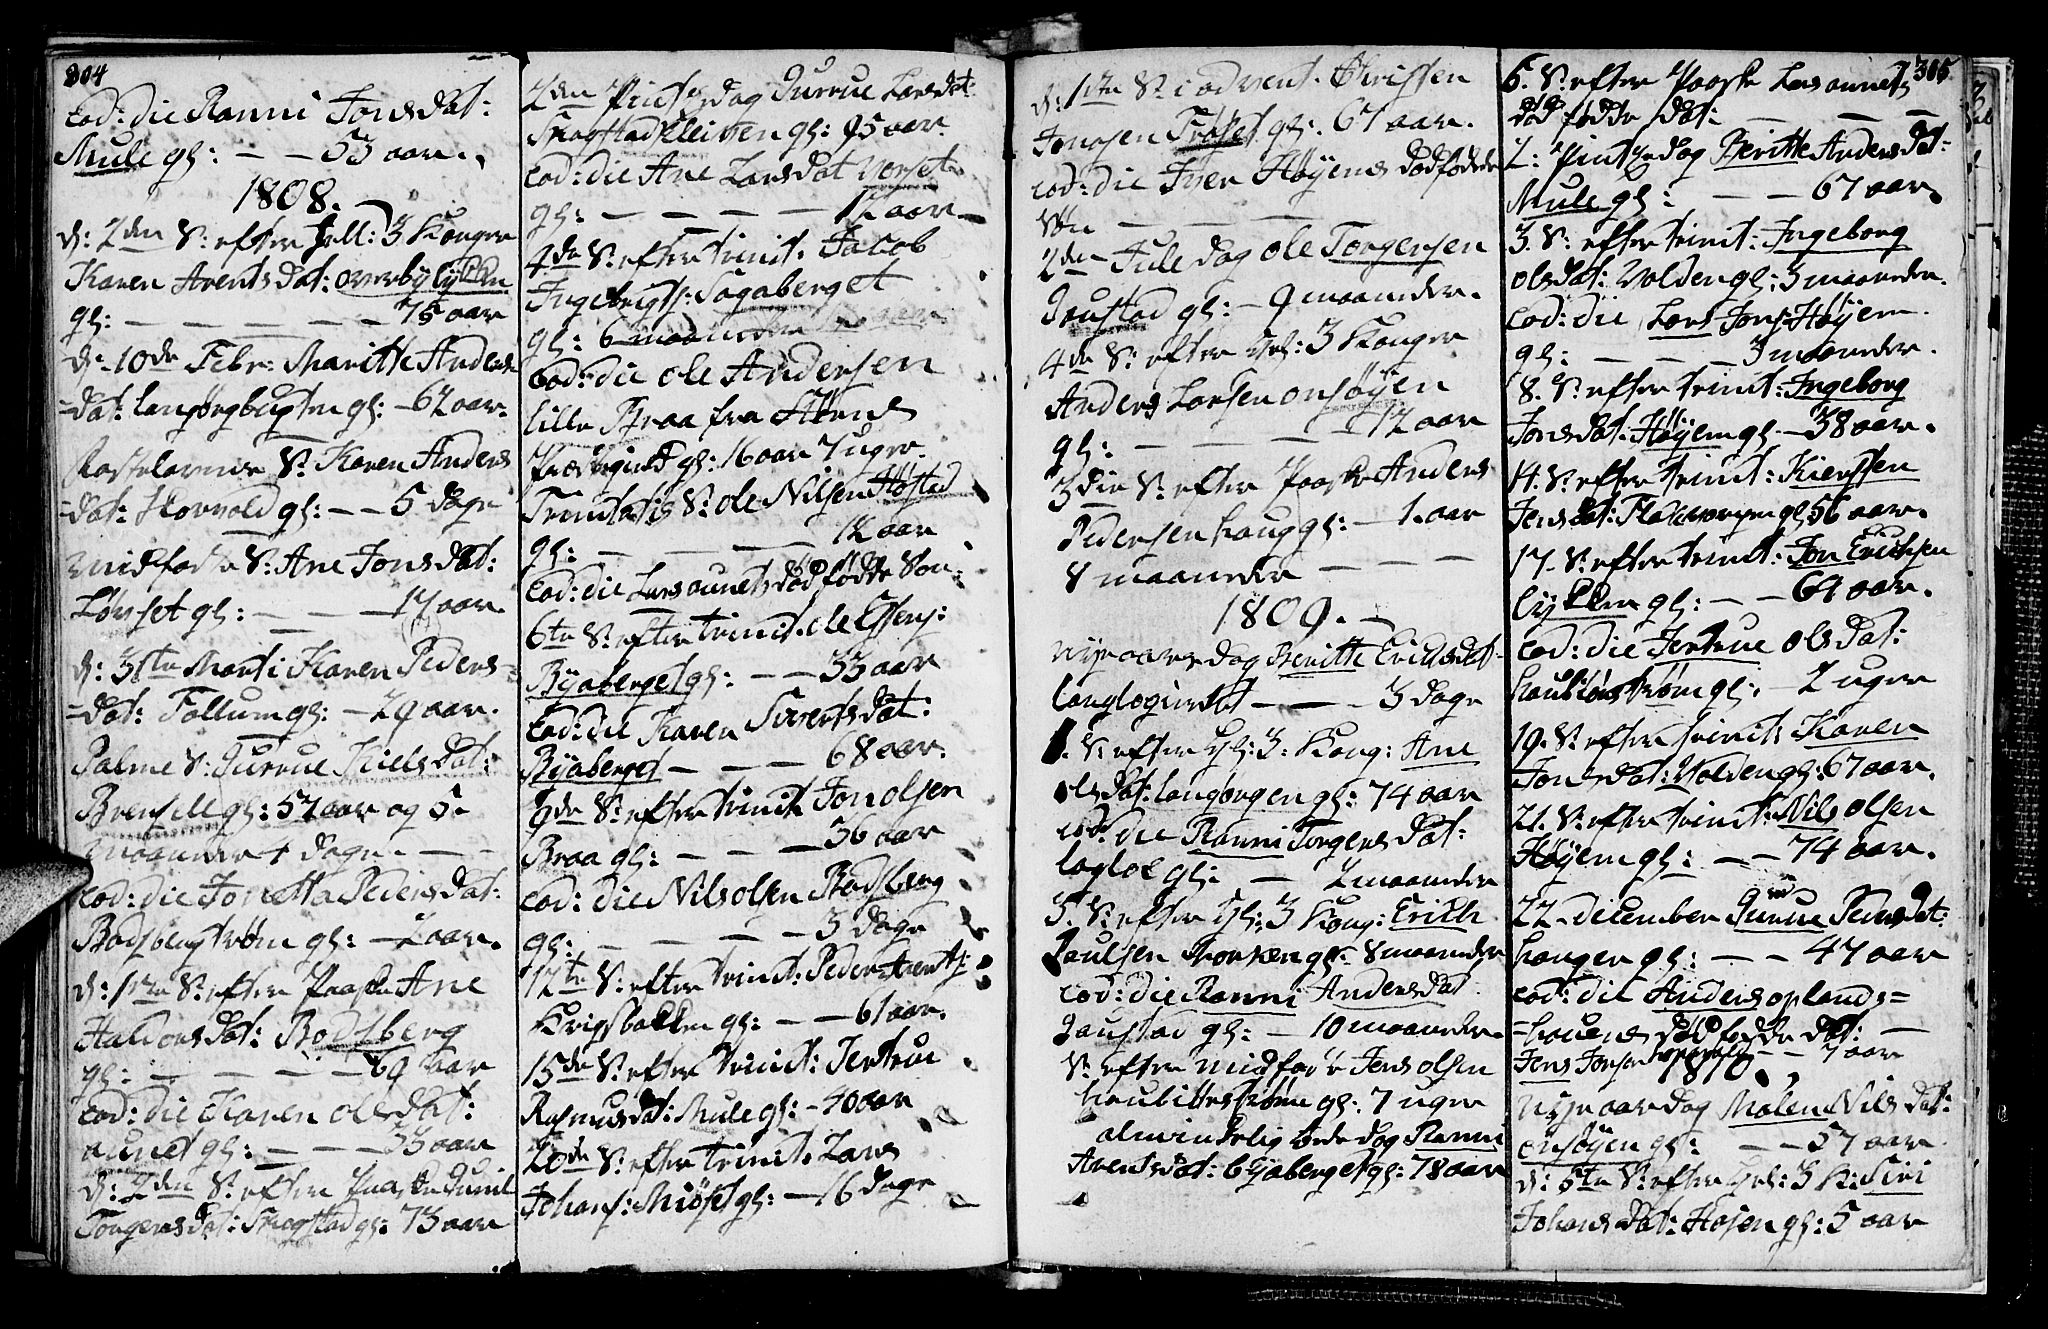 304
Eod: die Ranni Jonsdat:
Mule gl: — — 53 aar.
1808.
d: 2den S: efter Hell: 3 Konger
Karen Arentsdat: overbylykken
gl: — — — — — 75 aar
d. 10de Febr: Maritte Anders
=dat: Langørgbugten gl: — 62 aar.
Fastelavns S: Karen Anders
=dat: Horvold gl: — — 5 dage
midfaste S: Ane Jonsdat:
Løvset gl: — — — 17 aar.
d: 31te Marti Karen Peders=
=dat: Follum gl: — 29 aar.
Palme S: Gurrue Kielsdat:
Brenselle gl: 57 aar og 5
maaneder 4 dage — —
Eod: die Jonetta Pedersdat:
Bodsbergstrøm gl: — 2 aar.
d: 1ste S: efter Paaske Ane
Haldorsdat: Bodsberg
gl: — — — — — 69 aar
Eod: die Karen olsdat:
aunet gl: — — — 33 aar
d: 2den S: efter Paaske Guril
Torgersdat: Skogstad gl: 73 aar
2den Pintsedag Gurrue Larsdat:
Skogstadkleiven gl: 95 aar.
Eod: die Ane Larsdat Norset
gl: — — — — — 12 aar
4de S: efter trinit: Jacob
Ingebrigts: Sagaberget
gl: 6 maaneder
Eod: die ole Andersen
lille Braa fra Hørne
Præstegield gl: 16 aar 7 uger.
Trinitatis S: ole Nilsen Høstad
gl: — — — — — 12 aar
Eod: die Lars aunets dødfødde Søn
6te S: efter trinit. ole Essens:
Byaberget gl: — — 33 aar
Eod: die Karen Siverts dat:
Byaberget — — — 68 aar.
9de S: efter trinit Jon olsen
Braa gl: — — — 56 aar
Eod: die Nils olsen Bodsberg
gl: — — — — — 3 dage
12te S: efter trinit: Peder Arents:
Krigsbakken gl: — — 61 aar.
15de S: efter trinit: Jertrue
Rasmusdat: Mule gl: — 40 aar
20de S: efter trinit. Lars
Johans: Miøset gl: — 16 dage
d: 1ste S: i advent. Christen
Jonasen Frøset gl: 67 aar.
eod: die Iver Høyems dødfødde
Søn — — —
2den Juledag ole Torgersen
Gaustad gl: — 9 maaneder.
4de S: efter Hel: 3 Konger
Anders Larsen onsøyen
gl: — — — — — 12 aar
3die S: efter Paaske Anders
Pedersen haug gl: — 1. aar
8 maaneder — — —
1809.
nyeaarsdag Beritte Erichsdat
Langlogievet — — — 3 dage
1. S: efter Hl: 3. Kong: Ane
olsdat: Langørgen gl: 74 aar
eod: die Ranni Torgersdat:
Lagloe gl: — 2 maaneder
3. S: efter Hl: 3 Kong: Erich
Paulsen Morken gl: 8 maaneder
eod: die Ranni Andersdat
Gaustad gl: — 10 maaneder.
S: efter midfaste Jens olsen
haubittestrøm gl: 7 uger
almindelig bededag Ranni
Arentsdat: Byaberget gl: 78 aar
305.
6. S: efter Paaske Lars aunets
død fødde dat: — — —
2: Pintsedag Beritte Andersdat:
Mule gl: — — 67 aar.
3. S: efter trinit: Ingeborg
olsdat: Volden gl: 3 maaneder.
Eod: die Lars Jons: Høyem.
gl: — — — 3 maaneder.
8. S: efter trinit: Ingeborg
Jonsdat: Høyem gl. — 38 aar.
14. S: efter trinit: Kiersten
Jensdat: Flakvorpen gl: 56 aar.
17. S: efter trinit: Jon Erichsen
Lykken gl: — — 64 aar.
Eod: die Jertrue olsdat:
haubitsstrøm gl: — 2 uger
19. S: efter trinit: Karen
Jonsdat: Volden gl: 67 aar.
21. S: efter trinit: Nils olsen
Høyem gl: — — 74 aar.
22. december Gurrue Pedersdat:
haugen gl: — — 47 aar
Eod: die Anders oplands=
=hauens dødfødde dat: —
Jens Jonsen — — 7 aar
1810.
Nyeaarsdag Malen Nilsdat:
onsøyen gl: — — 57 aar.
d: 5te S: efter Hel: 3 K: Siri
Johansdat: Hosen gl: 5 aar